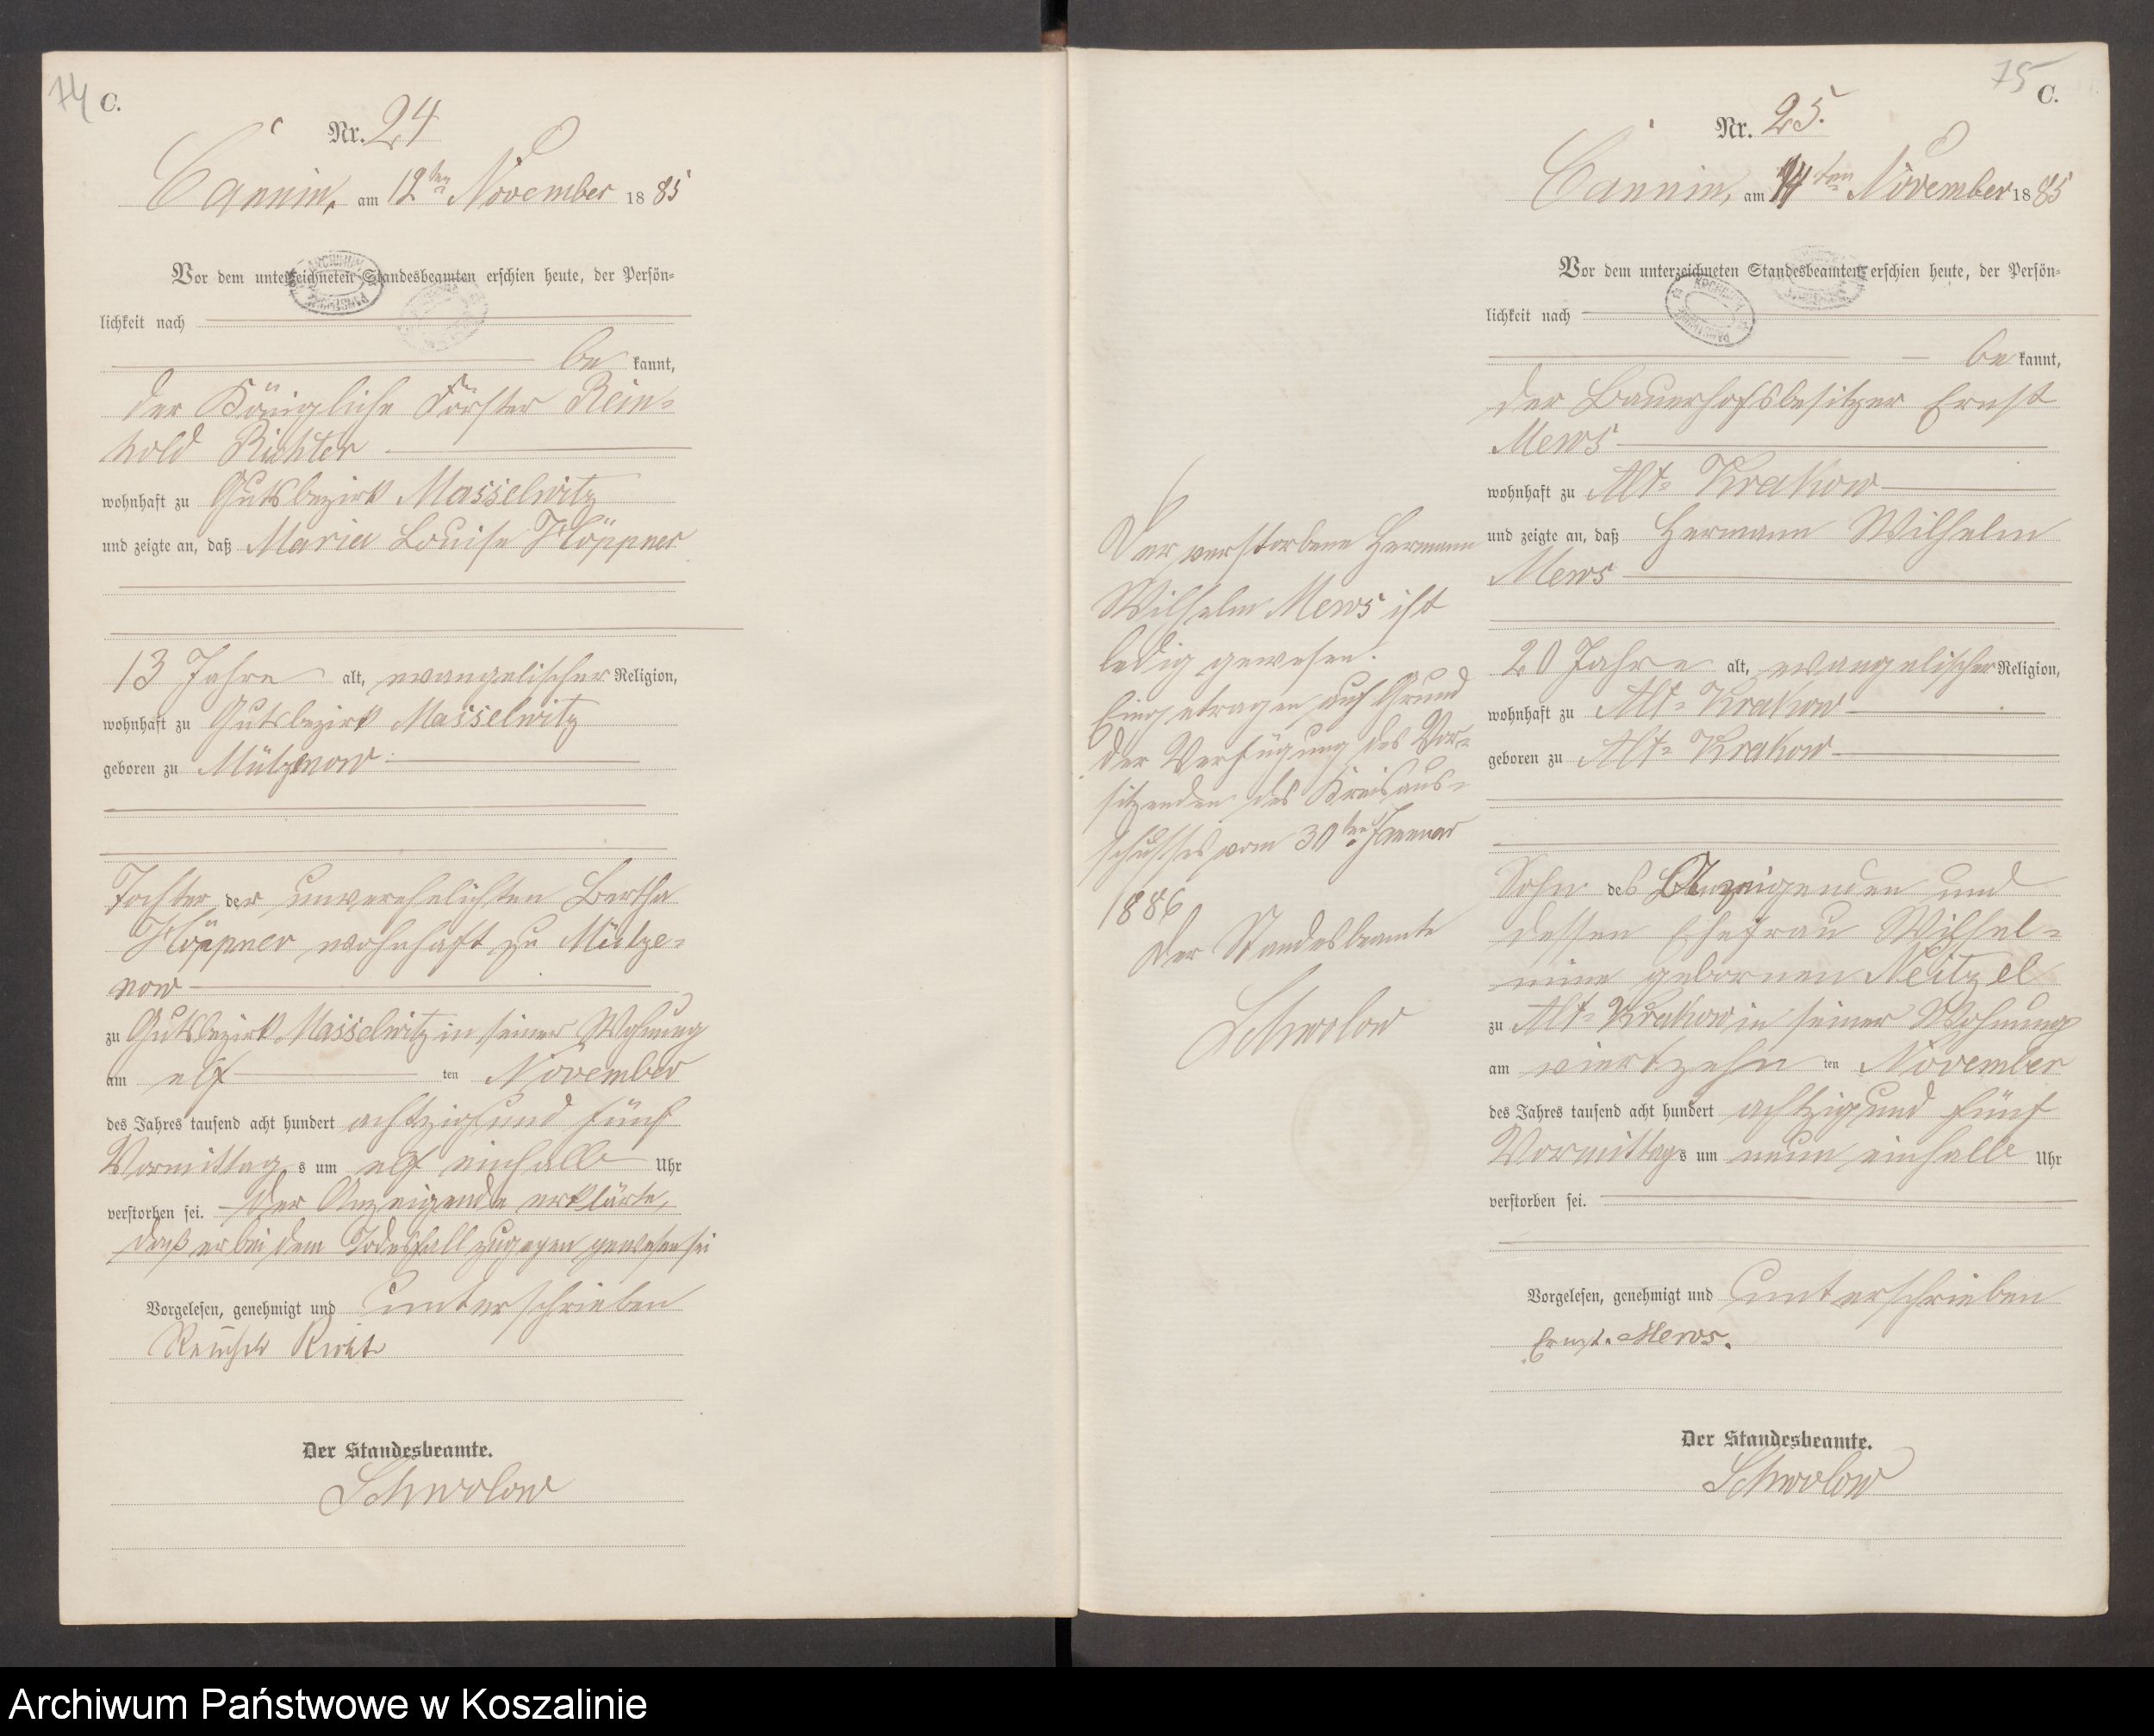 74
C.
Nr. 24
Cannin, am 12ten November 1885
Vor dem unterzeichneten Standesbeamten erschien heute, der Persön-
lichkeit nach
be kannt,
der Königliche Förster Rein-
hold Richter
wohnhaft zu Gutsbezirk Masselwitz
und zeigte an, daß Maria Louise Höppner
13 Jahre alt, evangelischer Religion,
wohnhaft zu Gutsbezirk Masselwitz
geboren zu Mützenow
Tochter der unverehelichten Bertha
Höppner wohnhaft zu Mütze-
now
zu Gutsbezirk Masselwitz in seiner Wohnung
am elf ten November
des Jahres tausend acht hundert achtzig und fünf
Vormittag s um elf einhalb Uhr
verstorben sei. Der Anzeigende erklärte,
daß er bei dem Todesfall zugegen gewesen sei
Vorgelesen, genehmigt und unterschrieben
Der Standesbeamte.
Schwolow
75
C.
Nr. 25.
Cannin, am 14ten November 1885
Vor dem unterzeichneten Standesbeamten erschien heute, der Persön-
lichkeit nach
be kannt,
der Bauerhofsbesitzer Ernst
Mews
wohnhaft zu Alt-Krakow
und zeigte an, daß Hermann Wilhelm
Mews
20 Jahre alt, evangelischer Religion,
wohnhaft zu Alt-Krakow
geboren zu Alt-Krakow
Sohn des Anzeigenden und
dessen Ehefrau Wilhel-
mine gebornen Neitzel
zu Alt-Krakow in seiner Wohnung
am viertzehn ten November
des Jahres tausend acht hundert achtzig und fünf
Vormittags um neun einhalb Uhr
verstorben sei.
Vorgelesen, genehmigt und unterschrieben
Ernst Mews.
Der Standesbeamte.
Schwolow
Der verstorbene Hermann
Wilhelm Mews ist
ledig gewesen.
Eingetragen auf Grund
der Verfügung des Vor-
sitzenden des Kreisaus-
schusses vom 30ten Januar
1886
Der Standesbeamte
Schwolow
Archiwum Państwowe w Koszalinie